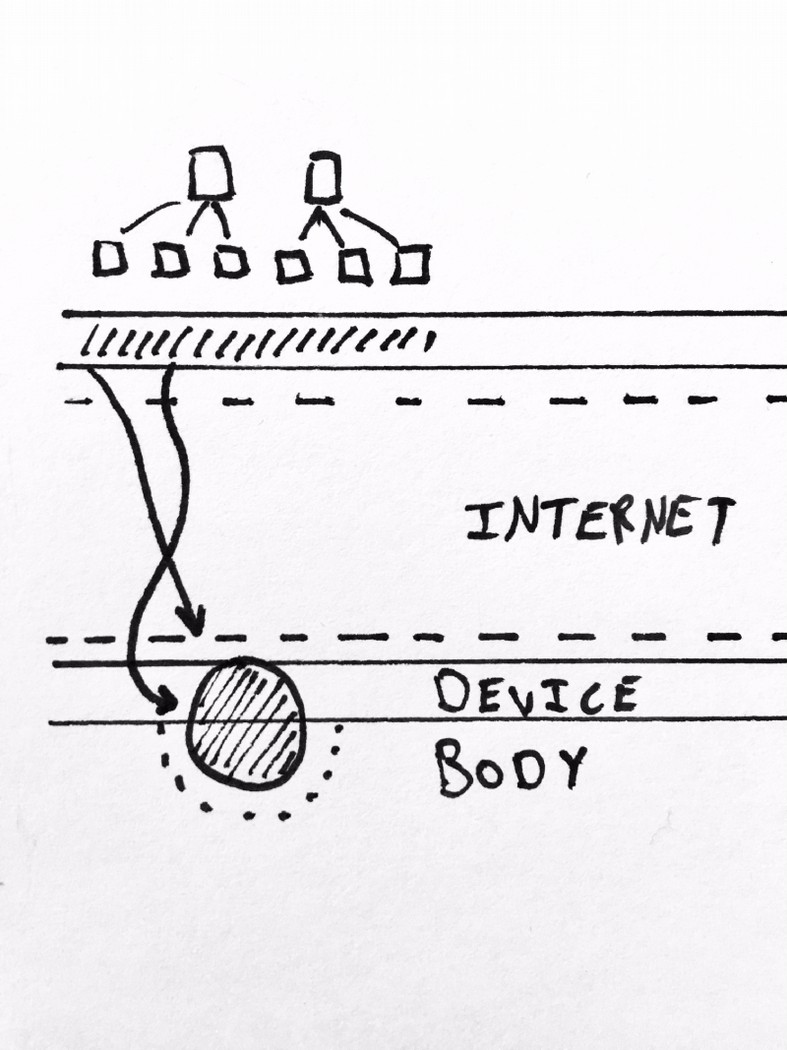 INTERNET
DEVICE
BODY